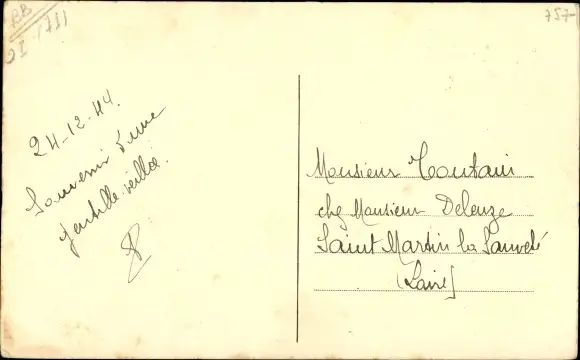 BB
757
24-12-44.
Souvenir d'une
gentille veillée.
Monsieur Coutain
chez Monsieur Deleuze
Saint Martin la Sauveté
(Loire)